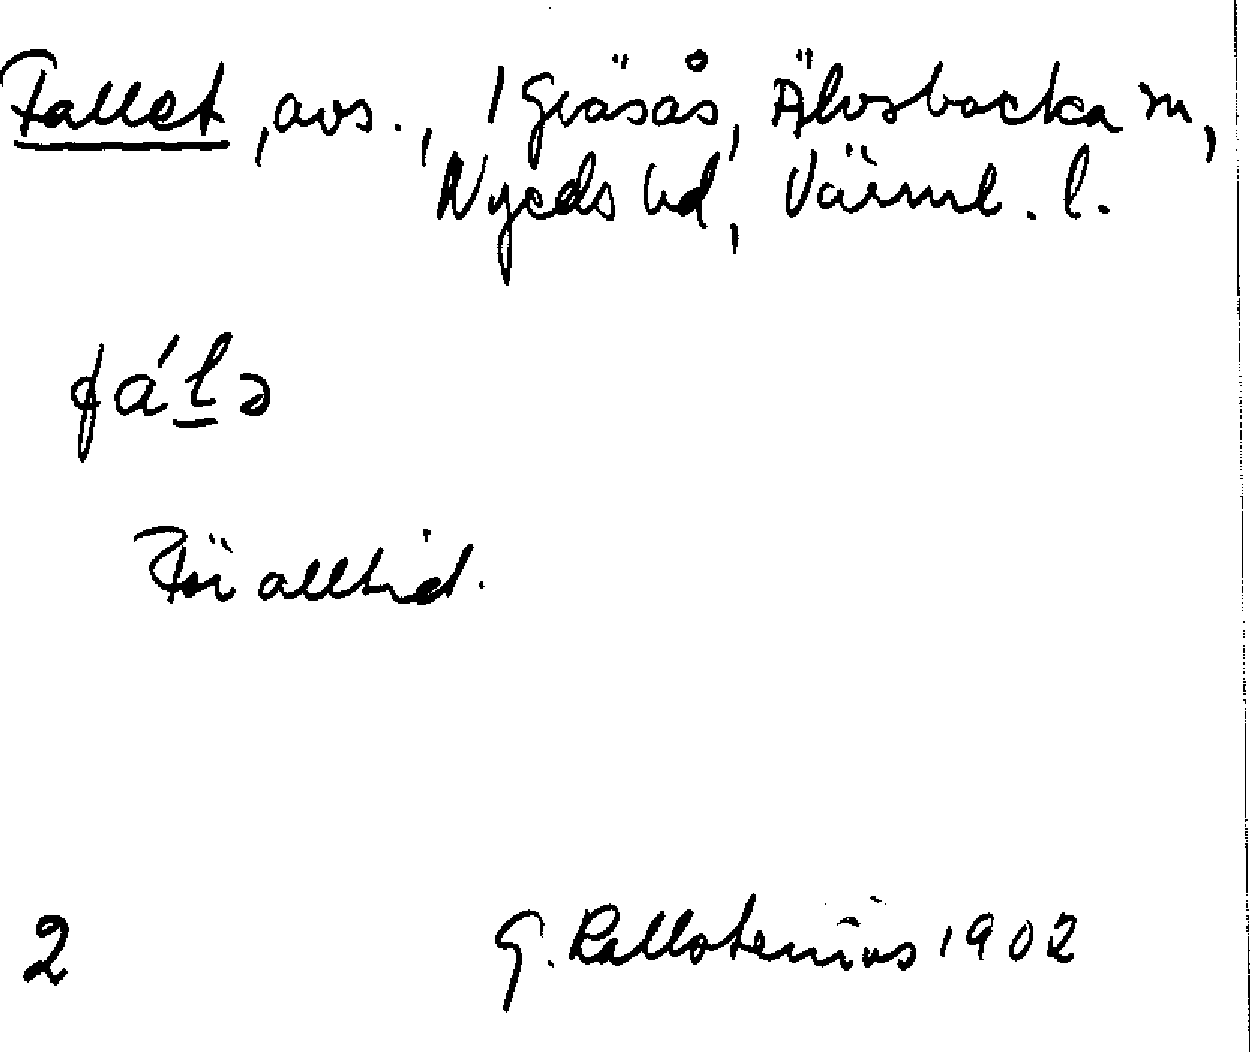 Fallet, avs., 1 Gräsås, Älvsbacka sn,
Nyeds hd, Värml. l.
fáḻə
För alltid.
2 G. Kallstenius 1902